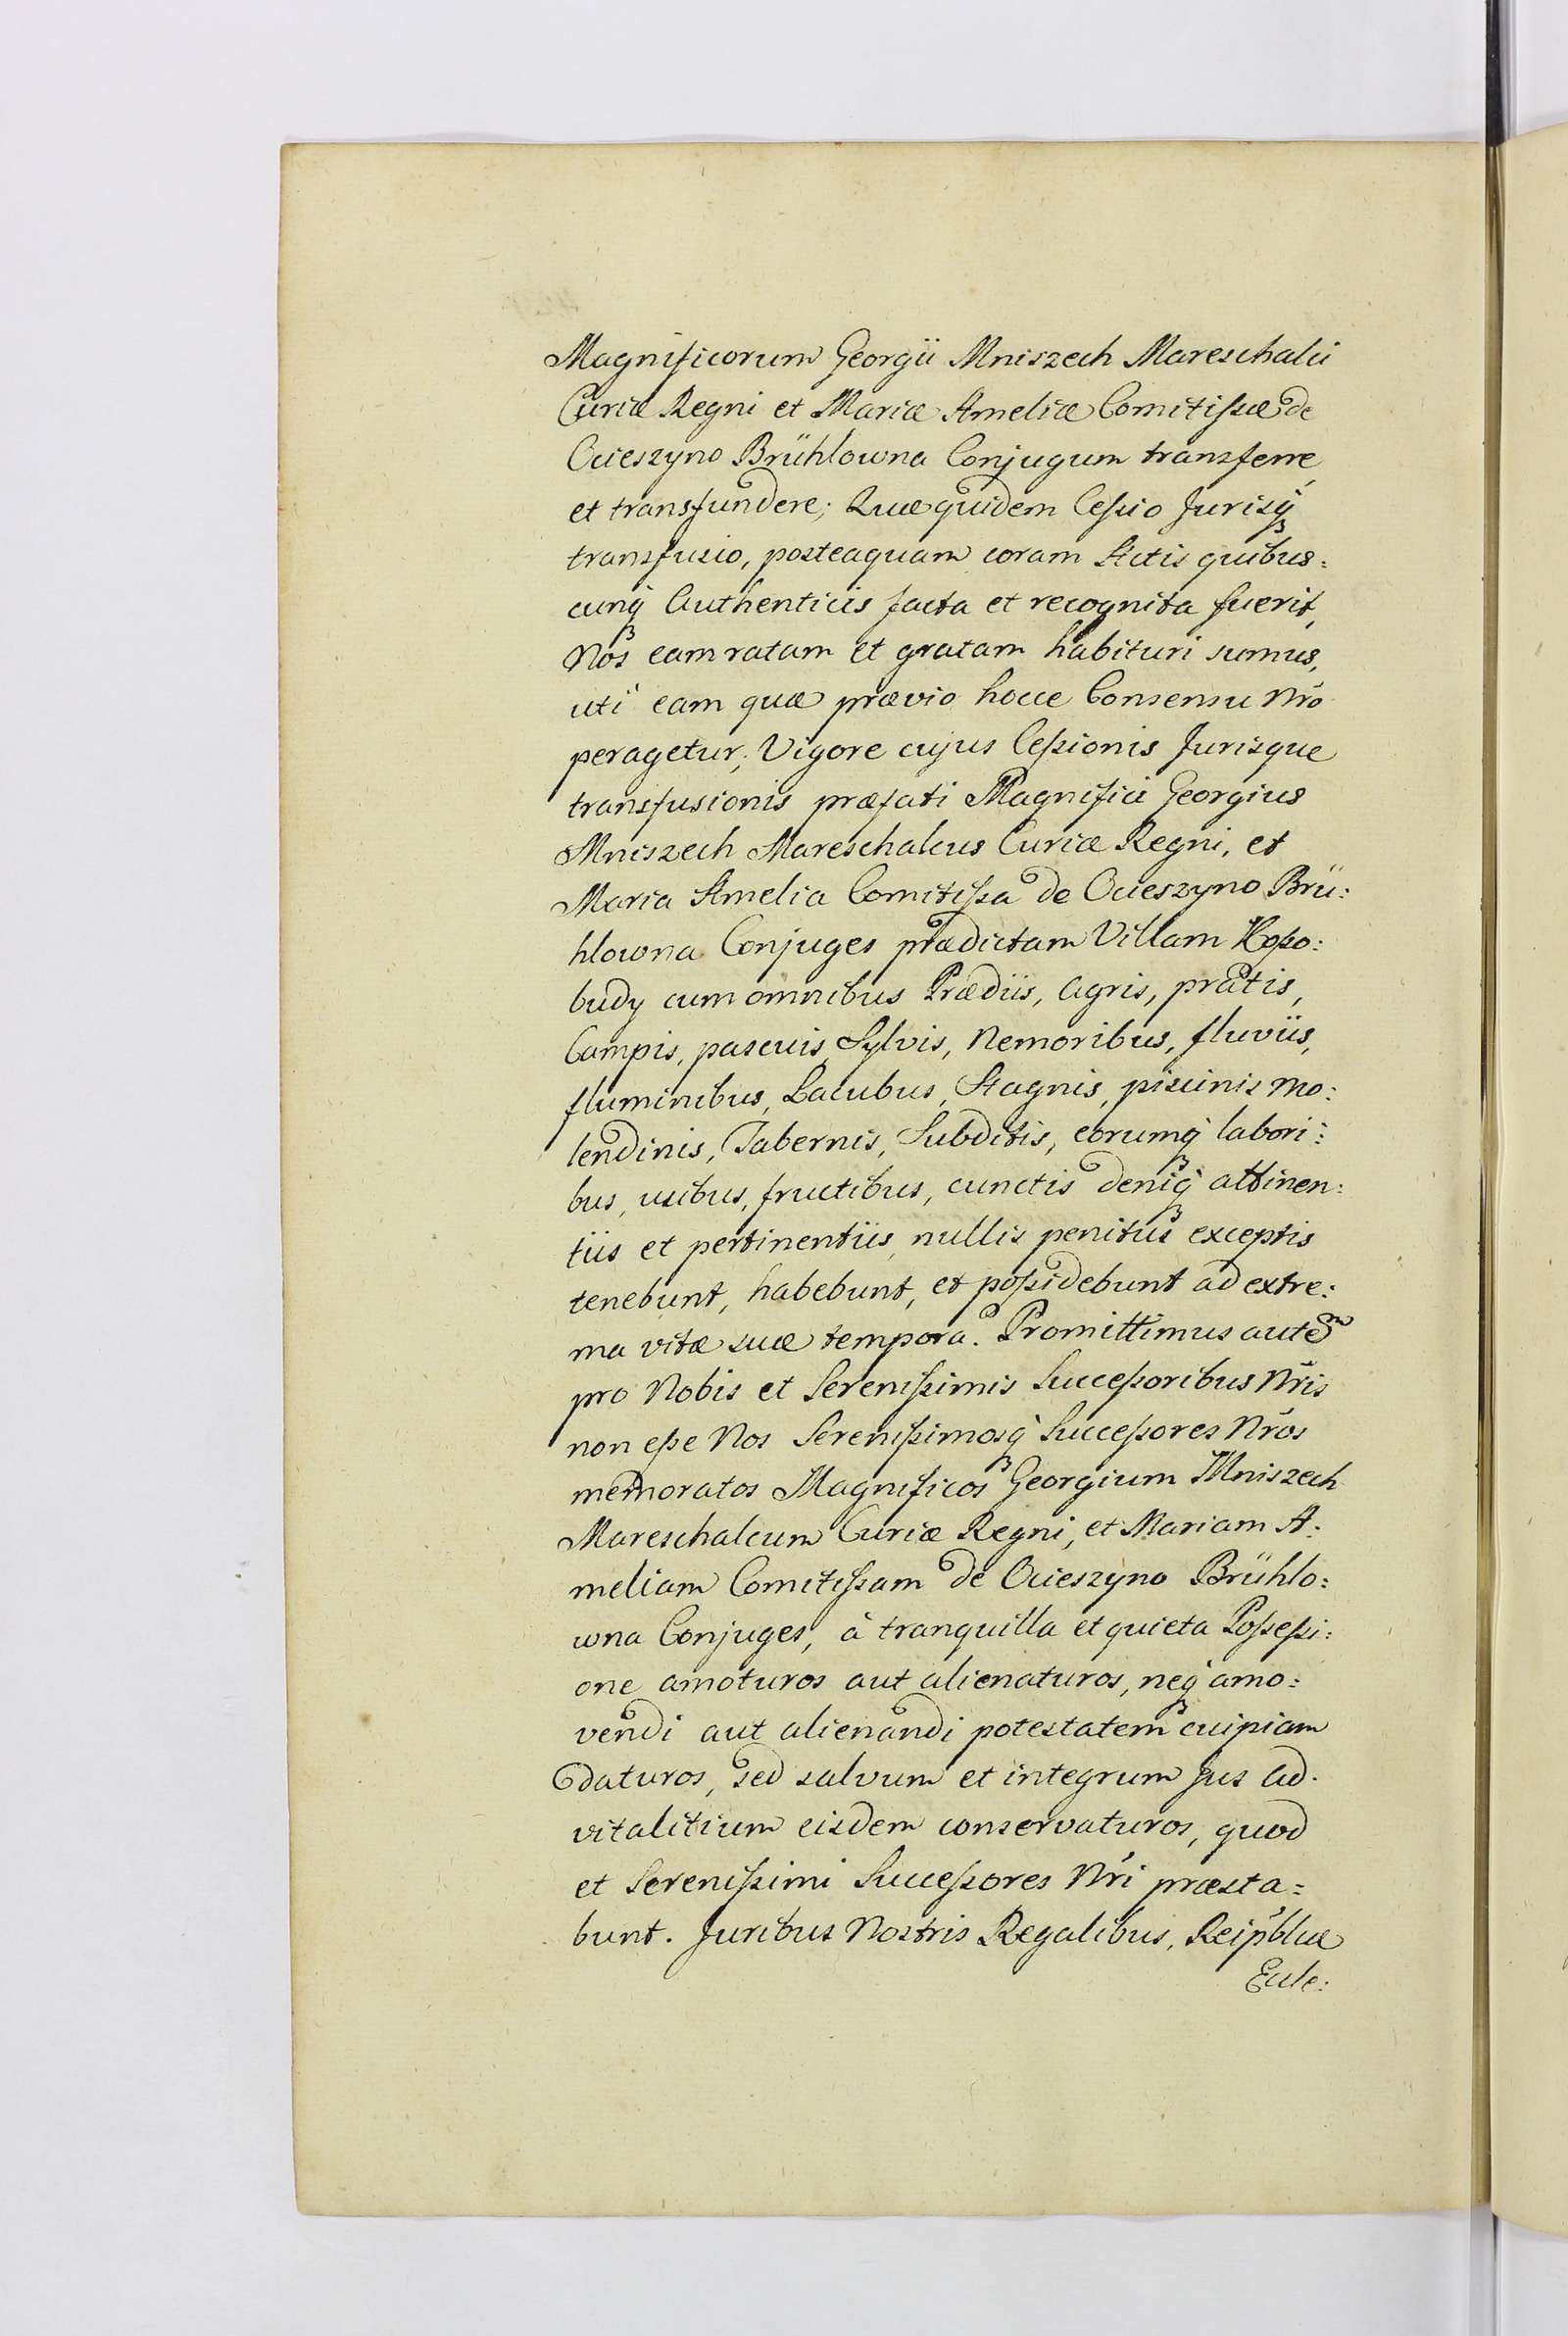 Magnificorum Georgii Mniszech Mareschalci
Curiæ Regni et Mariæ Ameliæ Comitissæ de
Ocieszyno Brühlowna Conjugum transferre
et transfundere; Quæ quidem Cessio Jurisq́ꝫ
transfusio, posteaquam coram Actis quibus:
cunq́ꝫ Authenticis facta et recognita fuerit,
Nos eam ratam et gratam habituri sumus,
uti eam quæ prævio hocce Consensu Nr̃o
peragetur; Vigore cujus Cessionis Jurisque
transfusionis præfati Magnifici Georgius
Mniszech Mareschalcus Curiæ Regni, et
Maria Amelia Comitissa de Ocieszyno Brü:
hlowna Conjuges prædictam Villam Kopo:
budy cum omnibus Prædiis, Agris, pratis,
Campis, pascuis, Sylvis, Nemoribus, fluviis,
fluminibus, Lacubus, Stagnis, piscinis mo:
lendinis, Tabernis, Subditis, eorumq́ꝫ labori:
bus, usibus, fructibus, cunctis deniq́ꝫ attinen:
tiis et pertinentiis, nullis penitus exceptis
tenebunt, habebunt, et possidebunt ad extre:
ma vitæ suæ tempora. Promittimus autem
pro Nobis et Serenissimis Successoribus Nr̃is
non esse Nos Serenissimosq́ꝫ Successores Nr̃os
memoratos Magnificos Georgium Mniszech
Mareschalcum Curiæ Regni, et Mariam A:
meliam Comitissam de Ocieszyno Brühlo:
wna Conjuges, à tranquilla et quieta Possessi:
one amoturos aut alienaturos, neq́ꝫ amo:
vendi aut alienandi potestatem cuipiam
daturos, sed salvum et integrum Jus ad.
vitalitium eisdem conservaturos, quod
et Serenissimi Successores Nr̃i præsta:
bunt. Juribus Nostris Regalibus, Reip̃blcæ
Eccle: